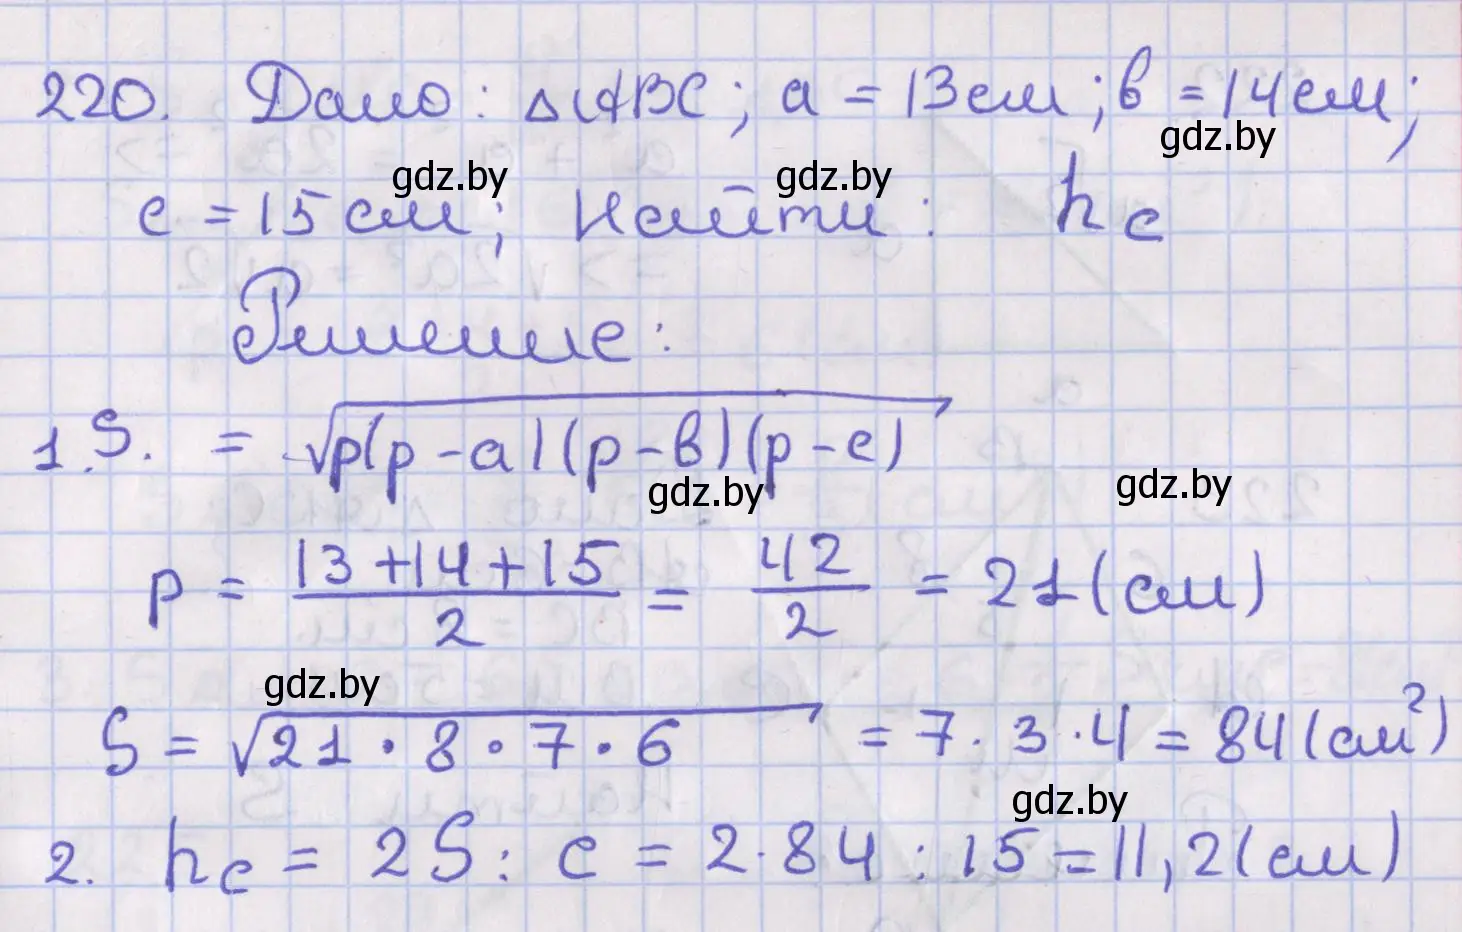 220. Дано: △ABC; a = 13 см; в = 14 см;
c = 15 см; Найти: h_c
Решение:
1. S. = √p(p-a)(p-в)(p-c)
p = (13+14+15)/2 = 42/2 = 21 (см)
S = √21·8·7·6 = 7·3·4 = 84 (см²)
2. h_c = 2S : c = 2·84 : 15 = 11,2 (см)
gdz.by
gdz.by
gdz.by
gdz.by
gdz.by
gdz.by
gdz.by